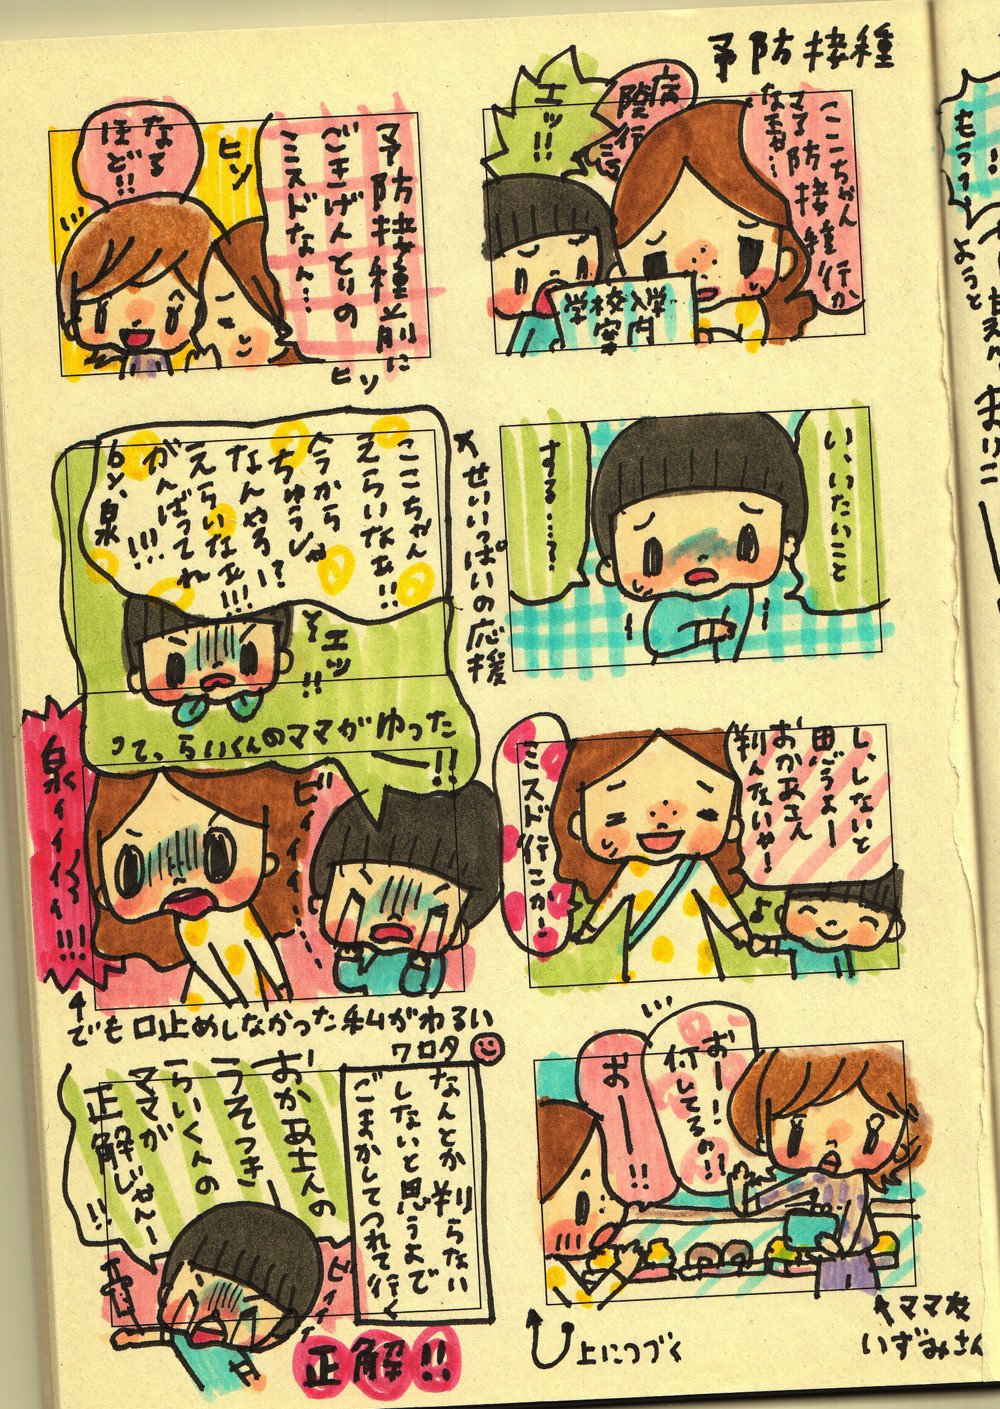 予防接種
ここちゃん
ママ予防接種行か
なきゃ…
病
院行こ
エッ!!
学校入学
案内
い、いたいこと
する…?
し、しないと
思うよー
おかあさん
判んないやー
ミスド行こかー
おー!
何してるの!!
おー!!
ママ友
いずみさん
上につづく
予防接種前に
ごきげんとりの
ミスドなん…
ヒソ
ヒソ
なる
ほど!!
せいいっぱいの応援
ここちゃん
えらいなぁ!!
今から
ちゅうしゃ
なんやろ!?
えらいなぁ!!!
がんばってれ
!!!
by、泉
エッ!!
って、らいくんのママがゆった
ー!!
泉ィィィィィ!!!
ビィィィ…
でも口止めしなかった私がわるい
ワロタ
なんとか判らない
しないと思うよで
ごまかしてつれて行く
おかあさんの
うそつきー
らいくんの
ママが
正解じゃんー
!!
ビィィィ
正解!!
もうすぐ
ようと